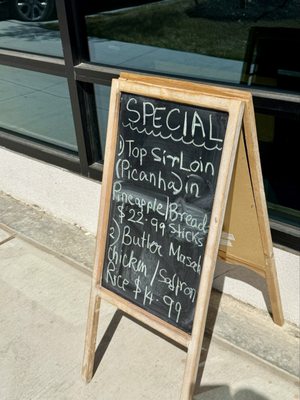 SPECIAL
1) Top Sirloin
(Picanha) in
Pineapple/Bread
$22.99 Sticks
2) Butter Masala
Chicken/Saffron
Rice $14.99